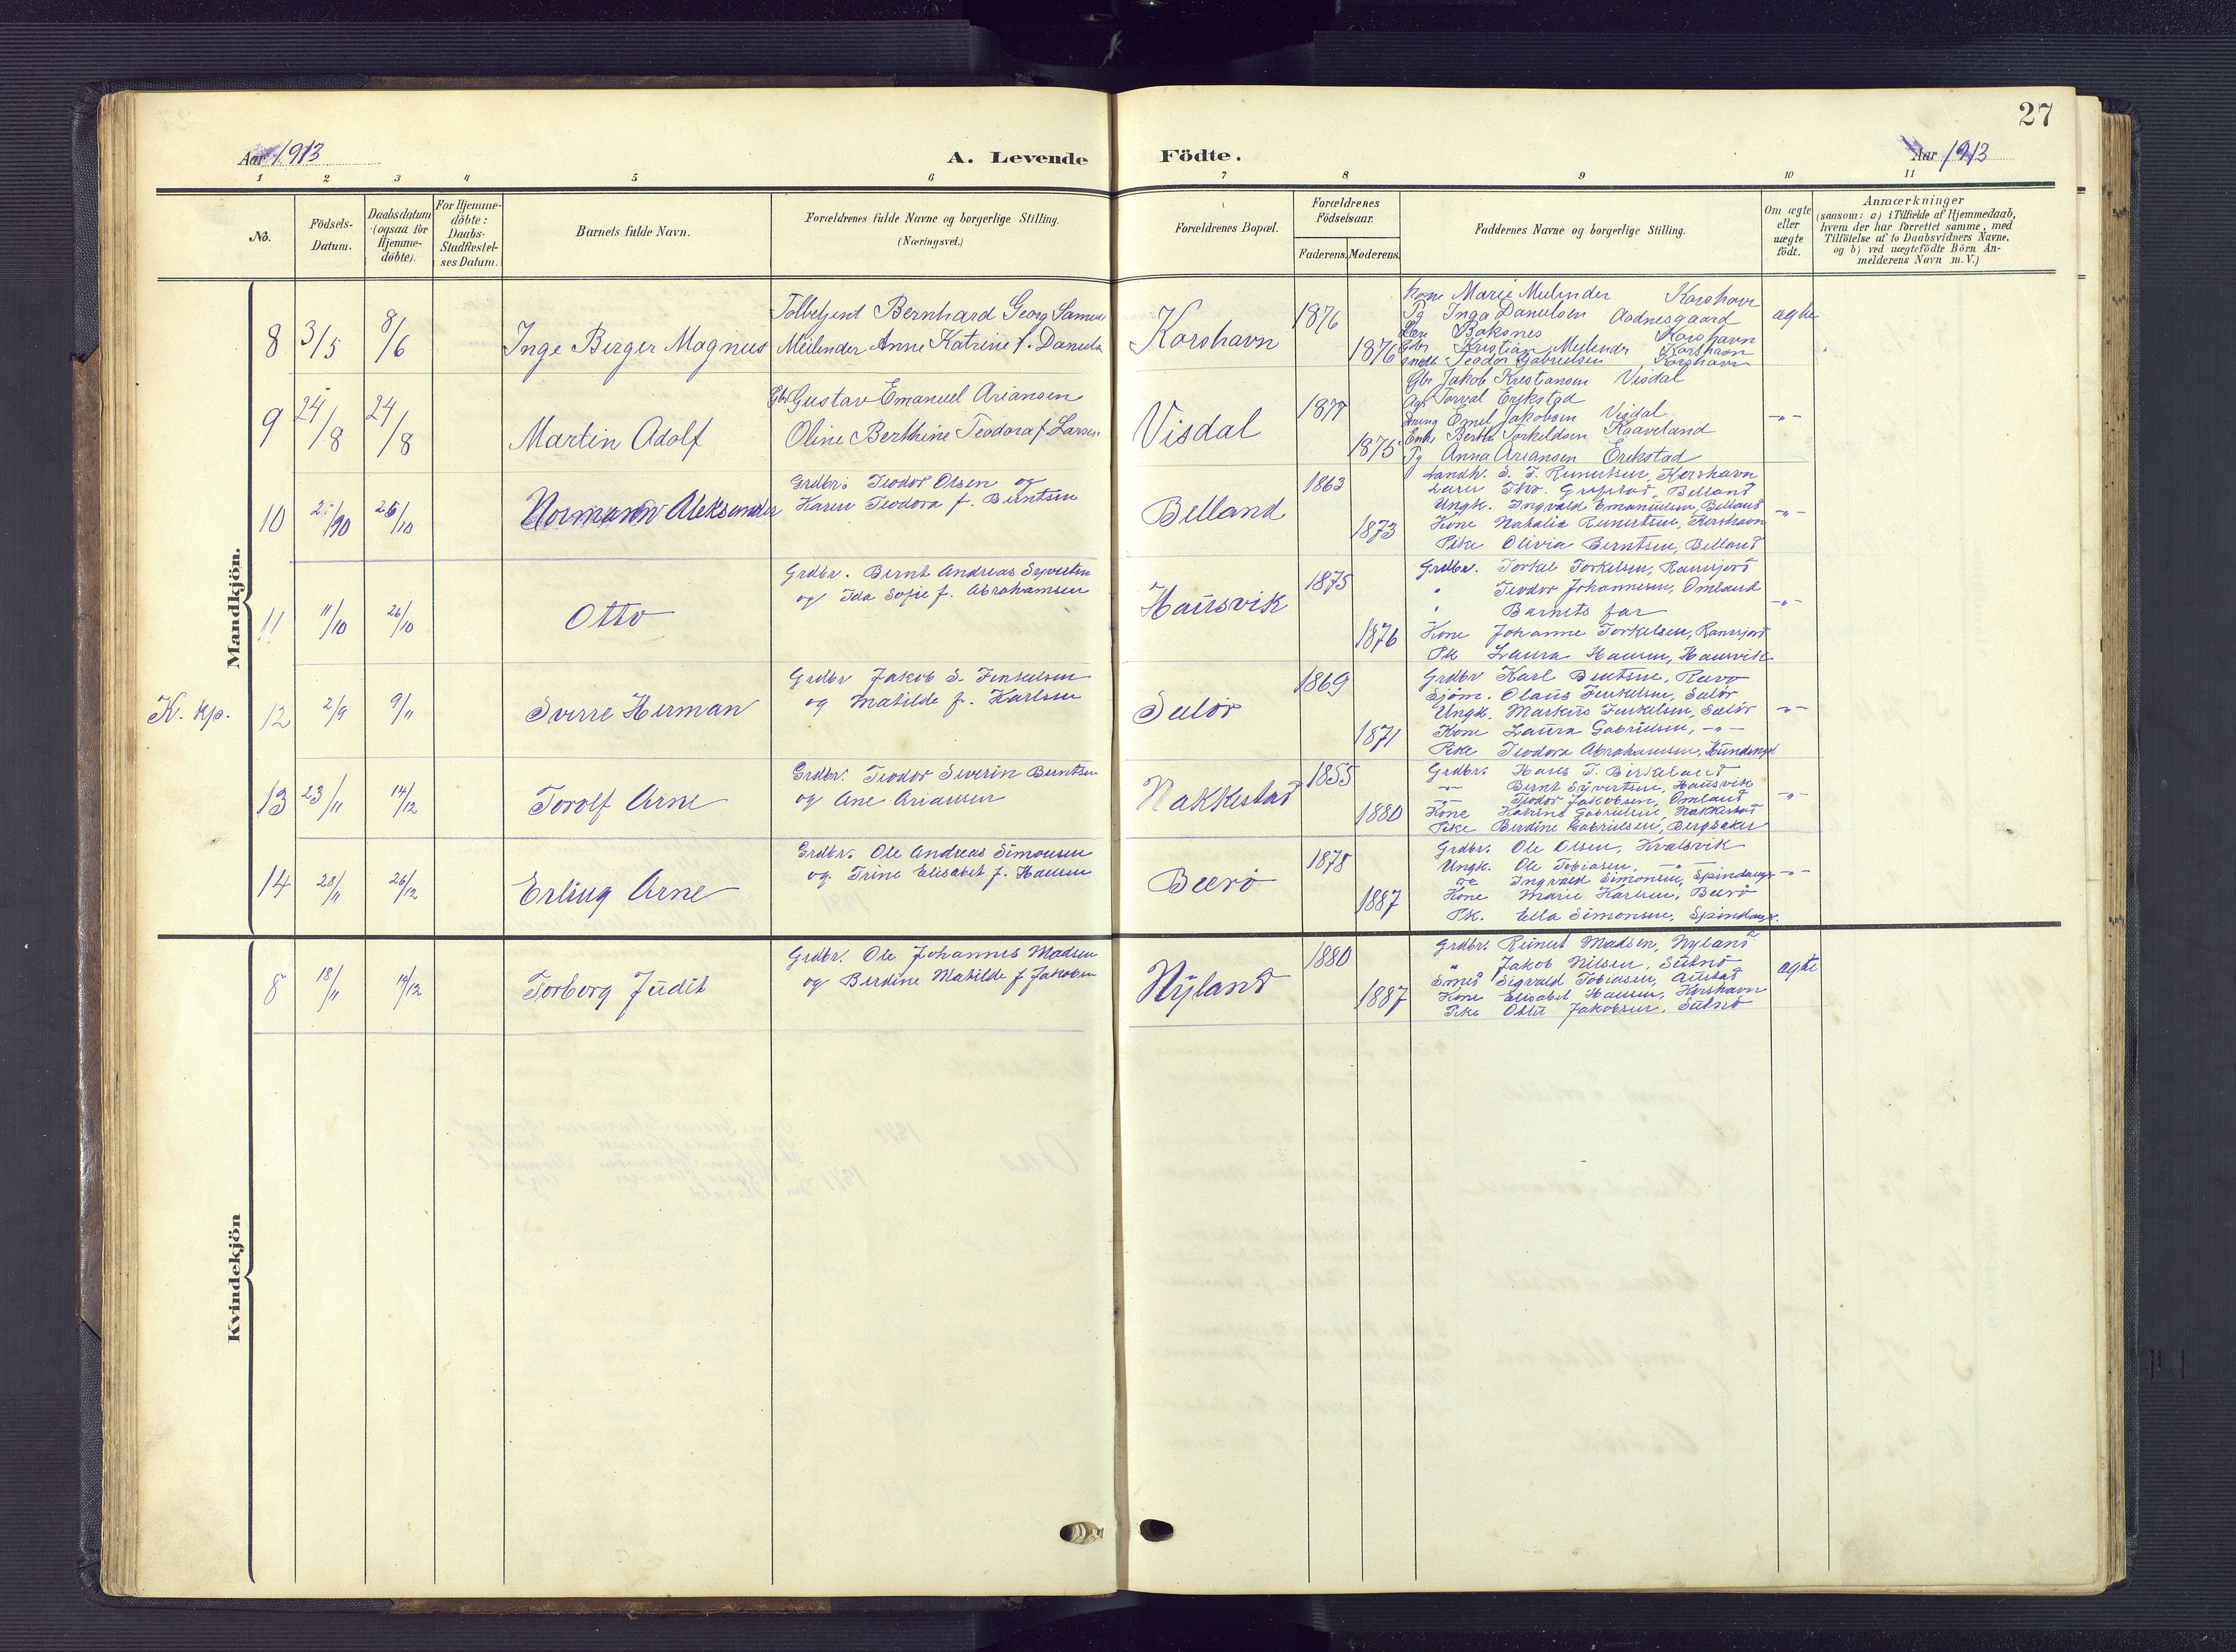 27
Aar 1913
A. Levende
Födte.
Aar 1913
1 2 3 4 5 6 7 8 9 10 11
No.
Födsels-Datum.
Daabsdatum (ogsaa for Hjemme-döbte).
For Hjemme-döbte: Daabs-Stadfæstel-ses Datum.
Barnets fulde Navn.
Forældrenes fulde Navne og borgerlige Stilling.
(Næringsvei.)
Forældrenes Bopæl.
Forældrenes Födselsaar.
Faderens. Moderens.
Faddernes Navne og borgerlige Stilling.
Om ægte eller uægte födt.
Anmærkninger
(saasom: a) i Tilfælde af Hjemmedaab,
hvem der har forrettet samme, med
Tilföielse af to Daabsvidners Navne,
og b) ved uægtefödte Börn An-
melderens Navn m. V.)
Mandkjön.
8 3/5 8/6 Inge Berger Magnus
Bernhard Georg
Anne Katrine f.
Korshavn 1876 1876
Kone Marie Korshavn
Pg Inga Danielsen Aadnesgaard
Korshavn
Kristian Korshavn
Teodor Gabrielsen Korshavn
agte
9 24/8 24/8 Martin Adolf
Gbr Gustav Emanuel Ariansen
Oline Berthine Teodora f. Larsen
Visdal 1877 1875
Gbr Jakob Kristiansen Visdal
Torval Erikstad
Emil Jakobsen Visdal
Enke Berthe Torkeldsen Kaaveland
Pg Anna Ariansen Erikstad
-"-
10 26/10 Normann Aleksander
Grdbr. Teodor Olsen og
Karen Teodora f. Berntsen
Belland 1863 1873
Landh. S. T. Reinertsen, Korshavn
Lærer Belland
Ungk. Ingvald Emanuelsen, Belland
Kone Natalia Reinertsen, Korshavn
Pike Olivia Berntsen, Belland
-"-
11 11/10 26/10 Otto
Grdbr. Bernt Andreas Syvertsen
og Ida Sofie f. Abrahamsen
Hausvik 1875 1876
Grdbr. Torkel Torkelsen, Ramsjord
" Teodor Johannesen, Omland
" Barnets far
Kone Johanne Torkelsen, Ramsjord
Pk Laura Hansen, Hausvik
-"-
K. kp. 12 2/9 9/11 Sverre Herman
Grdbr Jakob S.
og Matilde f. Karlsen
Selör 1869 1871
Grdbr Karl Berntsen,
Sjöm. Olaus Selör
Ungk. Markus Selör
Kone Laura Gabrielsen, -"-
Pike Teodora Abrahamsen,
-"-
13 23/11 14/12 Torolf Arne
Grdbr. Teodor Severin Berntsen
og Ane Ariansen
Nakkestad 1855 1880
Grdbr. Hans T. Birkeland
-"- Bernt Syvertsen, Hausvik
-"- Teodor Jakobsen, Omland
Kone Katrine Gabrielsen, Nakkestad
Pike Berdine Gabrielsen, Bergsaker
-"-
14 28/11 26/12 Erling Arne
Grdbr. Ole Andreas Simonsen
og Trine Elisabet f. Hansen
Beerö 1878 1887
Grdbr. Ole Olsen, Kvalsvik
Ungk. Ole Tobiasen, -"-
Ingvald Simonsen, Spindanger
Kone Marie Karlsen, Beerö
Pk. Ella Simonsen, Spindanger.
-"-
Kvindekjön
8 18/11 Torborg Judit
Grdbr. Ole Johannes Madsen
og Berdine Matilde f Jakobsen
Nyland 1880 1887
Grdbr. Reinert Madsen, Nyland
" Jakob Nilsen,
Smed Sigvald Tobiasen, Austad
Kone Elisabet Hansen, Korshavn
Pike Jakobsen,
agte